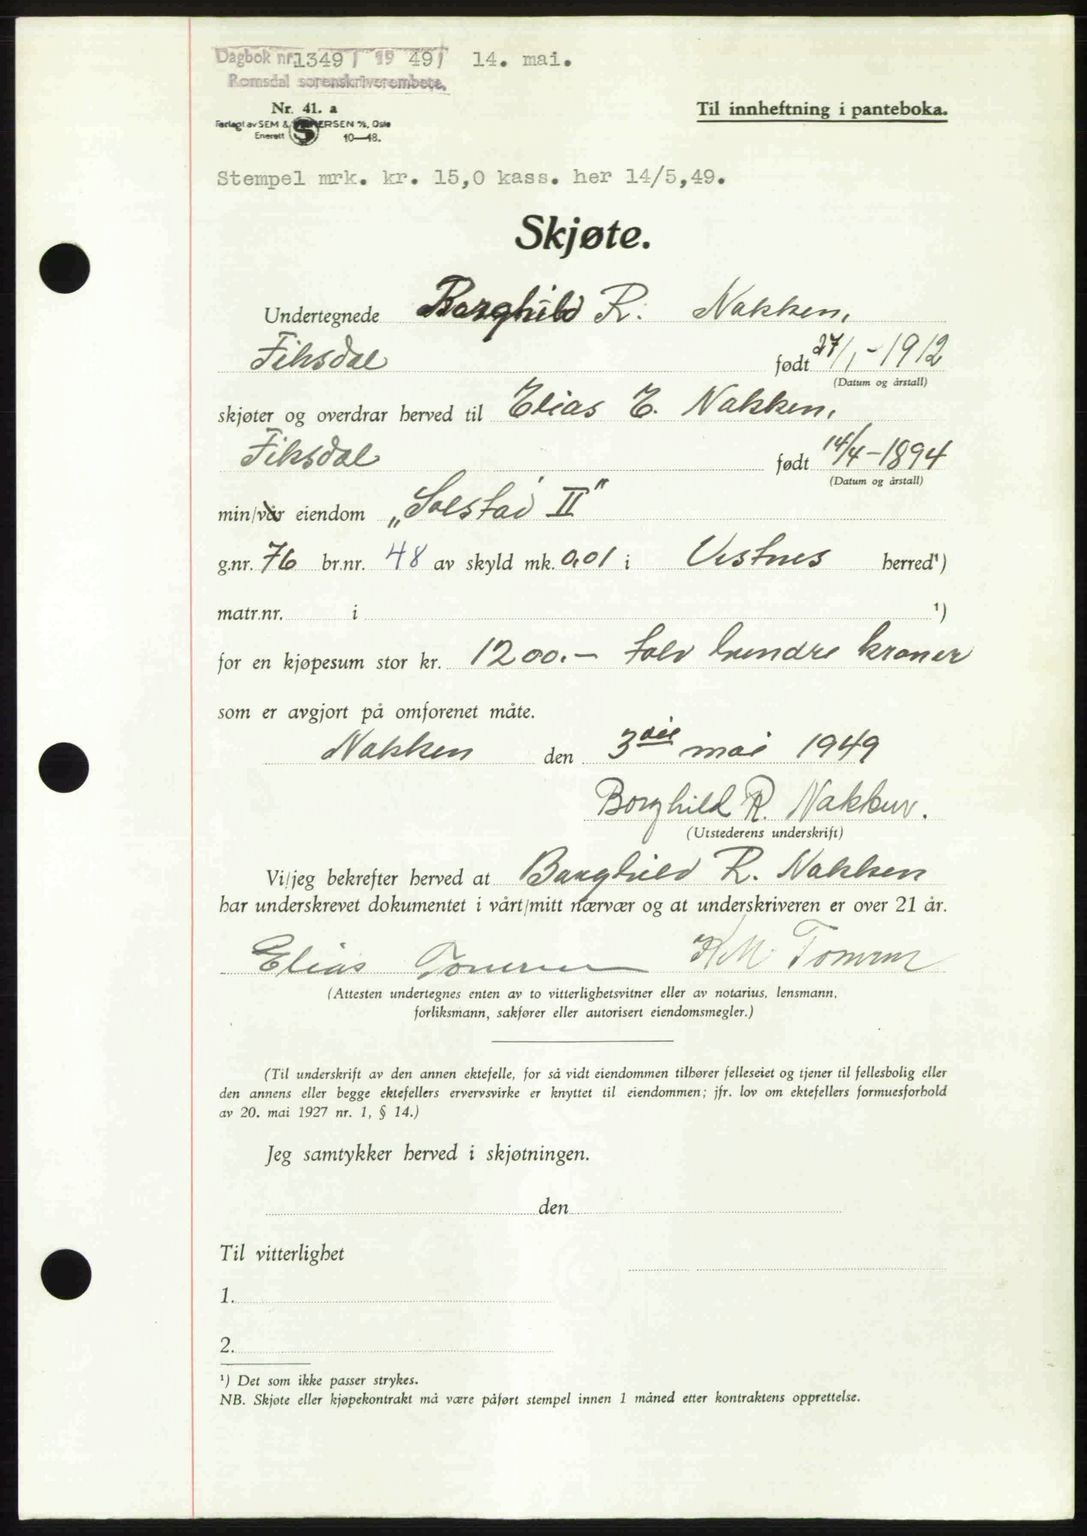 Dagbok nr. 1349 / 19 49 / 14. mai.
Romsdal sorenskriverembete.
Nr. 41. a
Til innheftning i panteboka.
Forlagt av SEM & STENERSEN A/S, Oslo
Enerett S 10—48.
Stempel mrk. kr. 15,0 kass. her 14/5,49.
Skjøte.
Undertegnede Borghild R. Nakken,
Fiksdal født 27/1-1912
(Datum og årstall)
skjøter og overdrar herved til Elias E. Nakken,
Fiksdal født 14/4-1894
(Datum og årstall)
min/vår eiendom „Solstad II"
g.nr. 76 br.nr. 48 av skyld mk. 0,01 i Vestnes herred¹)
matr.nr. i ¹)
for en kjøpesum stor kr. 1200.- tolv hundre kroner
som er avgjort på omforenet måte.
Nakken den 3die mai 1949
Borghild R. Nakken.
(Utstederens underskrift)
Vi/jeg bekrefter herved at Borghild R. Nakken
har underskrevet dokumentet i vårt/mitt nærvær og at underskriveren er over 21 år.
Elias Tomren K M Tomren
(Attesten undertegnes enten av to vitterlighetsvitner eller av notarius, lensmann,
forliksmann, sakfører eller autorisert eiendomsmegler.)
(Til underskrift av den annen ektefelle, for så vidt eiendommen tilhører felleseiet og tjener til fellesbolig eller
den annens eller begge ektefellers ervervsvirke er knyttet til eiendommen; jfr. lov om ektefellers formuesforhold
av 20. mai 1927 nr. 1, § 14.)
Jeg samtykker herved i skjøtningen.
den
Til vitterlighet
1.
2.
¹) Det som ikke passer strykes.
NB. Skjøte eller kjøpekontrakt må være påført stempel innen 1 måned etter kontraktens opprettelse.